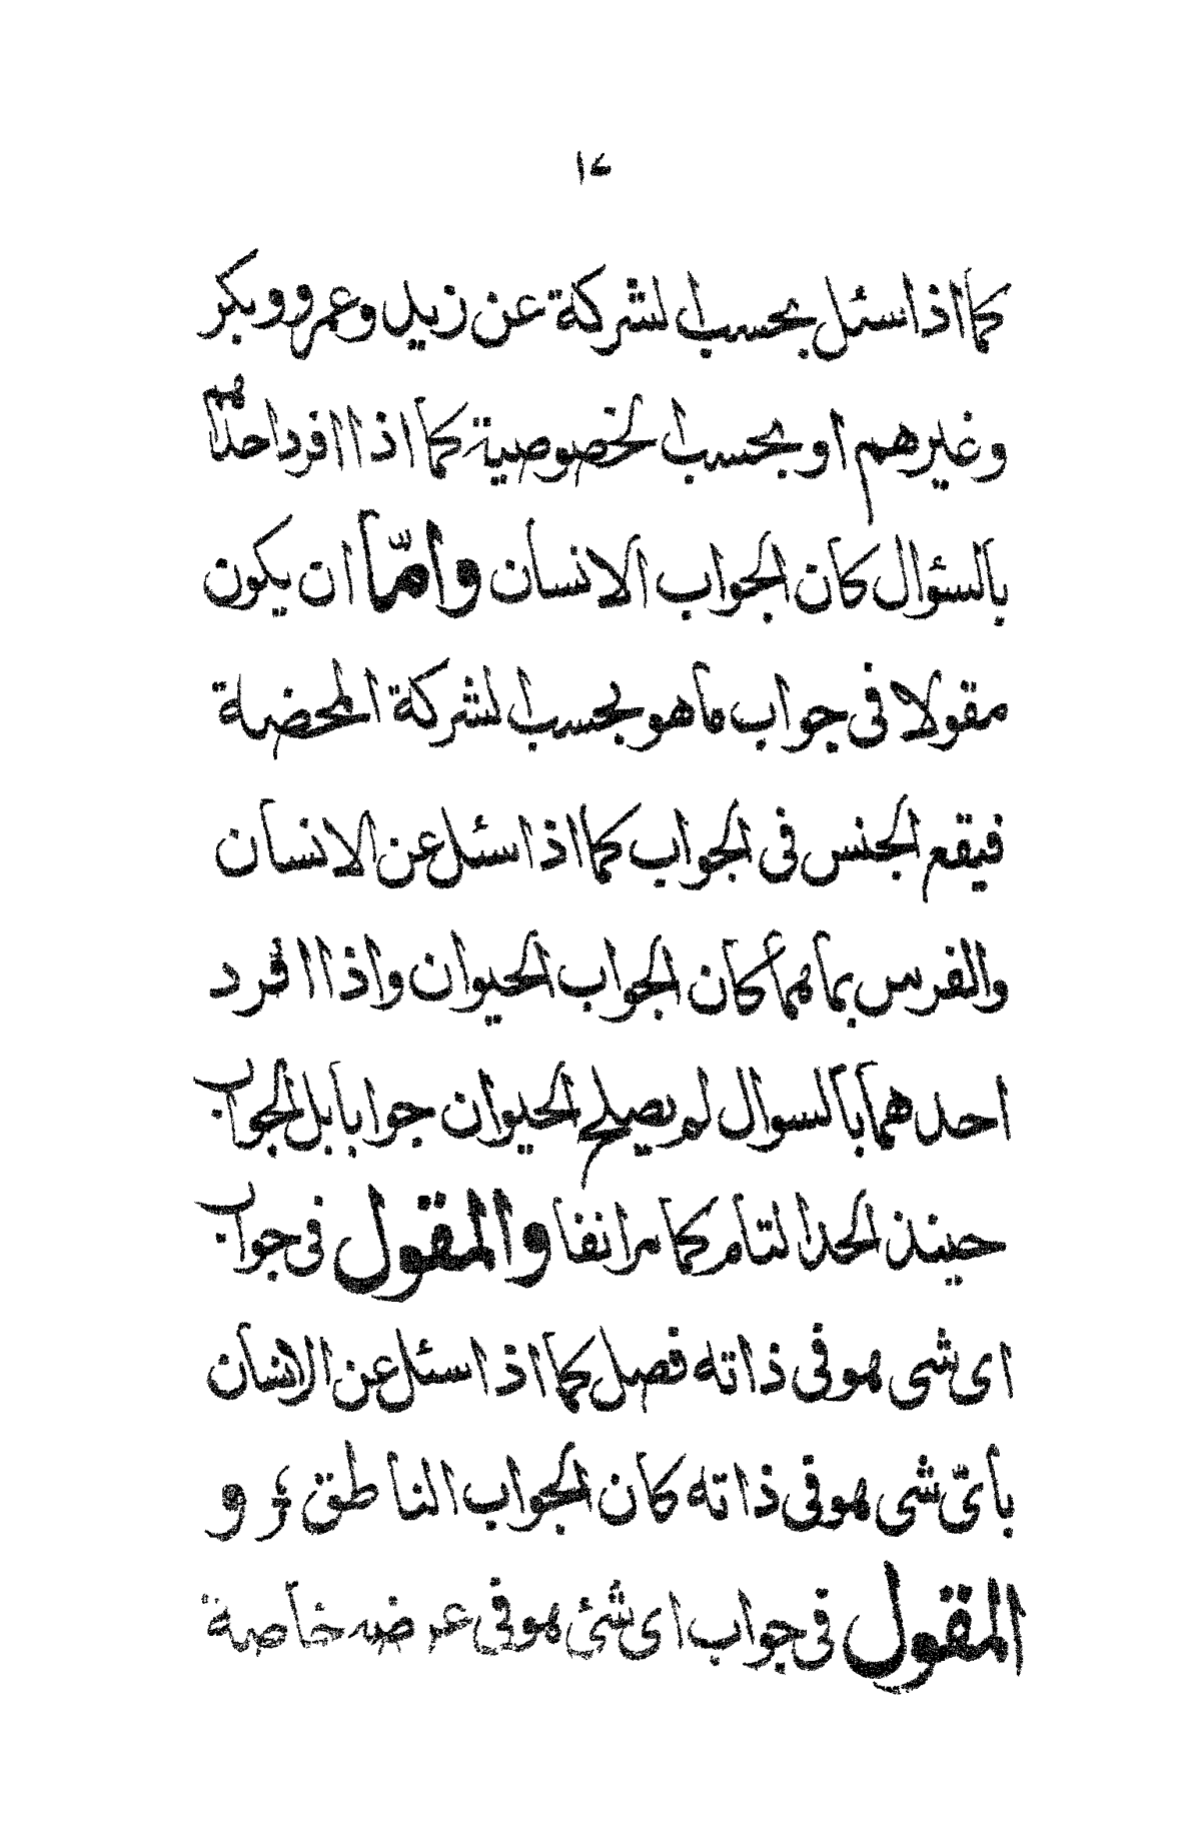 ١٤
كما اذا سئل بحسب الشركة عن زيد وعمرو وبكر
وغيرهم او بحسب الخصوصية كما اذا افرد احدهم
بالسؤال كان الجواب الانسان وامّا ان يكون
مقولا فى جواب ما هو بحسب الشركة المحضة
فيقع الجنس فى الجواب كما اذا سئل عن الانسان
والفرس بما هما كان الجواب الحيوان واذا افرد
احدهما بالسوال لم يصلح الحيوان جوابا بل الجواب
حينئذ الحد التام كما مر انفا والمقول فى جواب
اى شى هو فى ذاته فصل كما اذا سئل عن الانسان
باىّ شى هو فى ذاته كان الجواب الناطق و
المقول فى جواب اى شئ هو فى عرضه خاصة